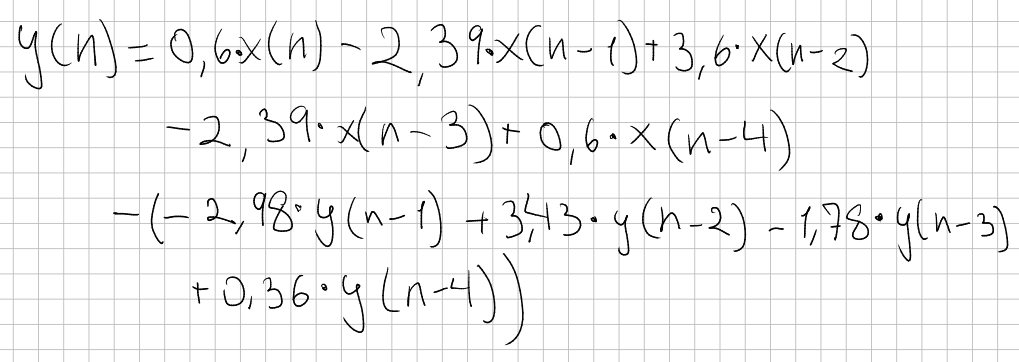 y(n) = 0,6·x(n) - 2,39·x(n-1) + 3,6·x(n-2)
-2,39·x(n-3) + 0,6·x(n-4)
-(-2,98·y(n-1) + 3,43·y(n-2) - 1,78·y(n-3)
+ 0,36·y(n-4))